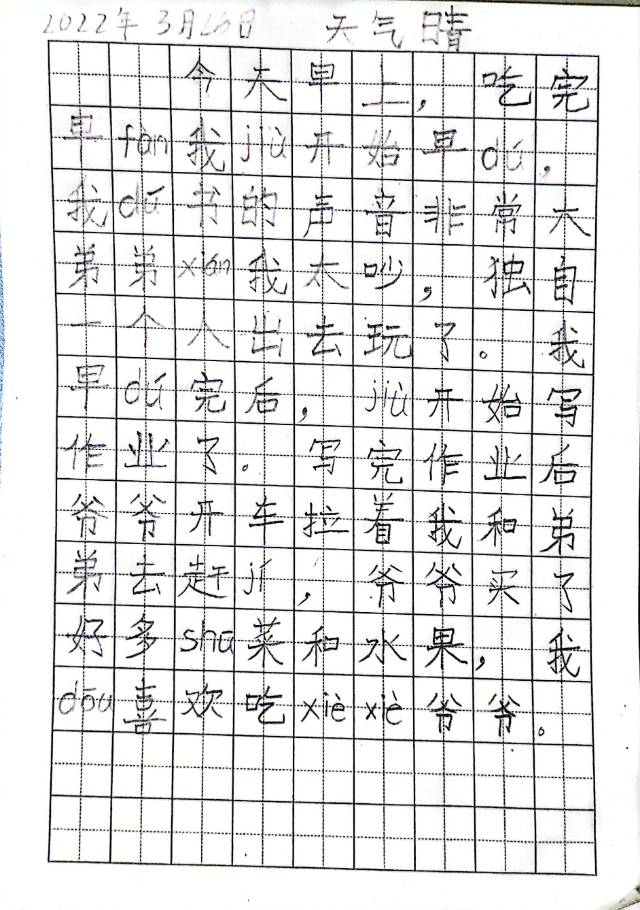 2022年3月26日 天气晴
今天早上，吃完
早fàn我jiù开始早dú，
我dú书的声音非常大
弟弟xián我太吵，独自
一个人出去玩了。我
早dú完后，jiù开始写
作业了。写完作业后
爷爷开车拉着我和弟
弟去赶jí，爷爷买了
好多shū菜和水果，我
dōu喜欢吃xièxiè爷爷。